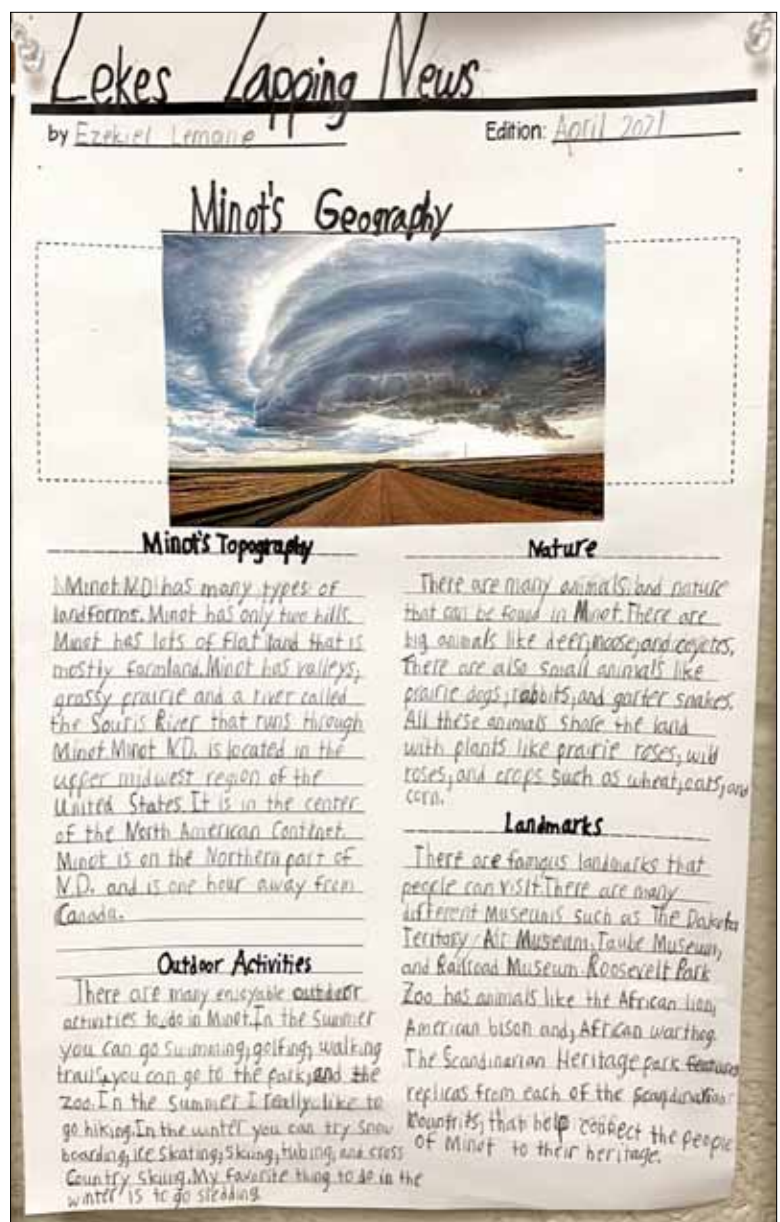 Zekes Zapping News
by Ezekiel Lemoine
Edition: April 2021
Minot's Geography
Minot's Topography
Minot N.D. has many types of
landforms. Minot has only two hills.
Minot has lots of flat land that is
mostly farmland. Minot has valleys,
grassy prairie and a river called
the Souris River that runs through
Minot. Minot N.D. is located in the
upper midwest region of the
United States. It is in the center
of the North American Continet.
Minot is on the Northern part of
N.D. and is one hour away from
Canada.
Outdoor Activities
There are many enjoyable outdoor
activities to do in Minot. In the Summer
you can go swimming, golfing, walking
trails, you can go to the park, and the
zoo. In the Summer I really like to
go hiking. In the winter you can try snow
boarding, ice skating, skiing, tubing, and cross
Country skiing. My favorite thing to do in the
winter is to go sledding.
Nature
There are many animals and nature
that can be found in Minot. There are
big animals like deer, moose, and coyotes.
There are also small animals like
prairie dogs, rabbits, and garter snakes.
All these animals share the land
with plants like prairie roses, wild
roses, and crops such as wheat, oats, and
corn.
Landmarks
There are famous landmarks that
people can visit. There are many
different Museums such as The Dakota
Territory Air Museum, Taube Museum,
and Railroad Museum. Roosevelt Park
Zoo has animals like the African lion,
American bison and, African warthog.
The Scandinarian Heritage park features
replicas from each of the Scandinavian
Countries, that help connect the people
of Minot to their heritage.